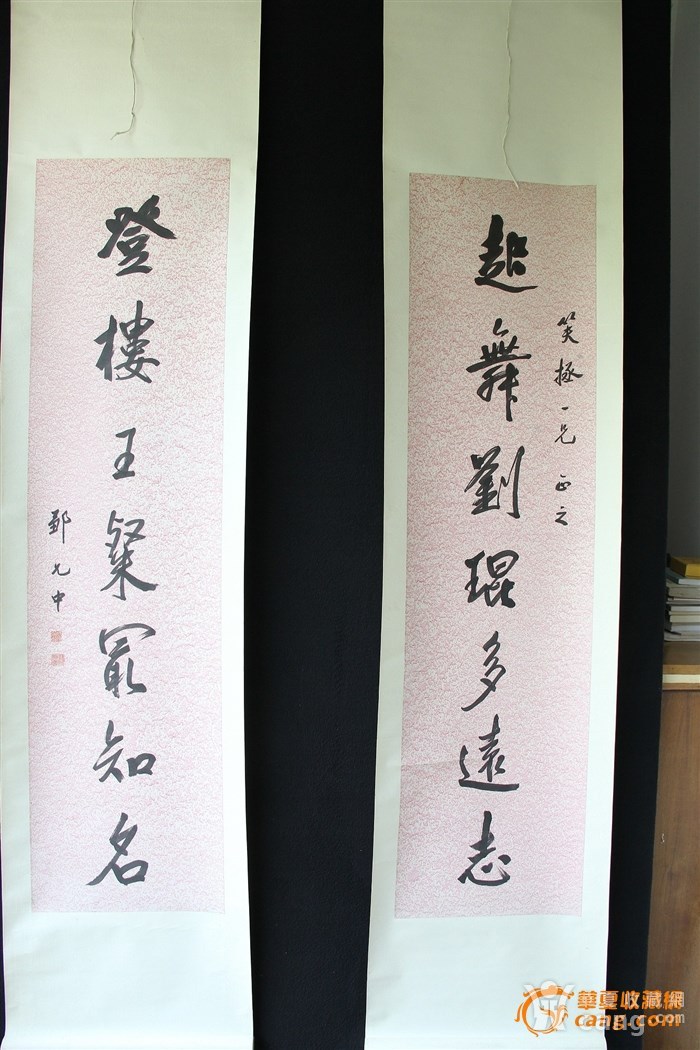 起舞劉琨多遠志
笑拯一兄正之
登樓王粲冣知名
鄞允中
華夏收藏網
cang.com